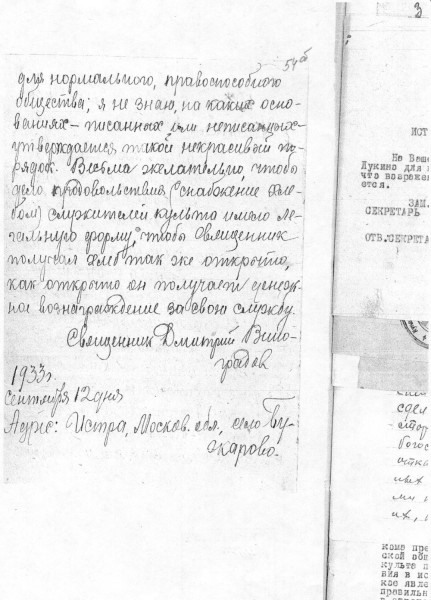 3
54об
для нормального, правоспособного
общества; я не знаю, на каких осно-
ваниях — писанных или неписанных —
утверждается такой некрасивый по-
рядок. Весьма желательно, чтобы
дело продовольствия (снабжение хле-
бом) служителей культа имело ле-
гальную форму, чтобы священник
получал хлеб так же открыто,
как открыто он получает денеж-
ное вознаграждение за свою службу.
Священник Дмитрий Вино-
градов
1933 г.
сентября 12 дня
Адрес: Истра, Москов. обл., село Бу-
жарово.
ИСТ
На Ваше
Лукино для
что возраже
ется.
ЗАМ.
СЕКРЕТАРЬ
ОТВ.СЕКРЕТА
сдел
богос
их,
кома пре
ской общ
культа п
вия в ис
кое явле
правильн